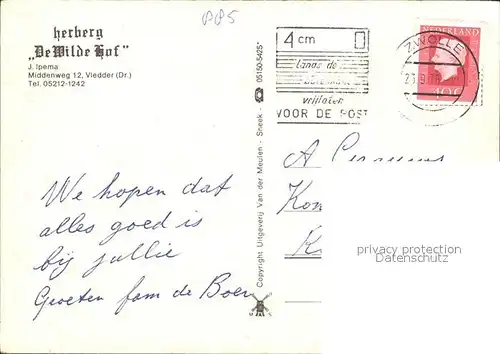 PP5
herberg
„De Wilde Hof"
J. Ipema
Middenweg 12, Vledder (Dr.)
Tel. 05212-1242
We hopen dat
alles goed is
bij jullie
Groeten fam de Boer
Copyright Uitgeverij Van der Meulen - Sneek - 05150-5425*
4 cm
langs de
vrijlaten
VOOR DE POST
ZWOLLE
NEDERLAND
40c
A
privacy protection
Datenschutz